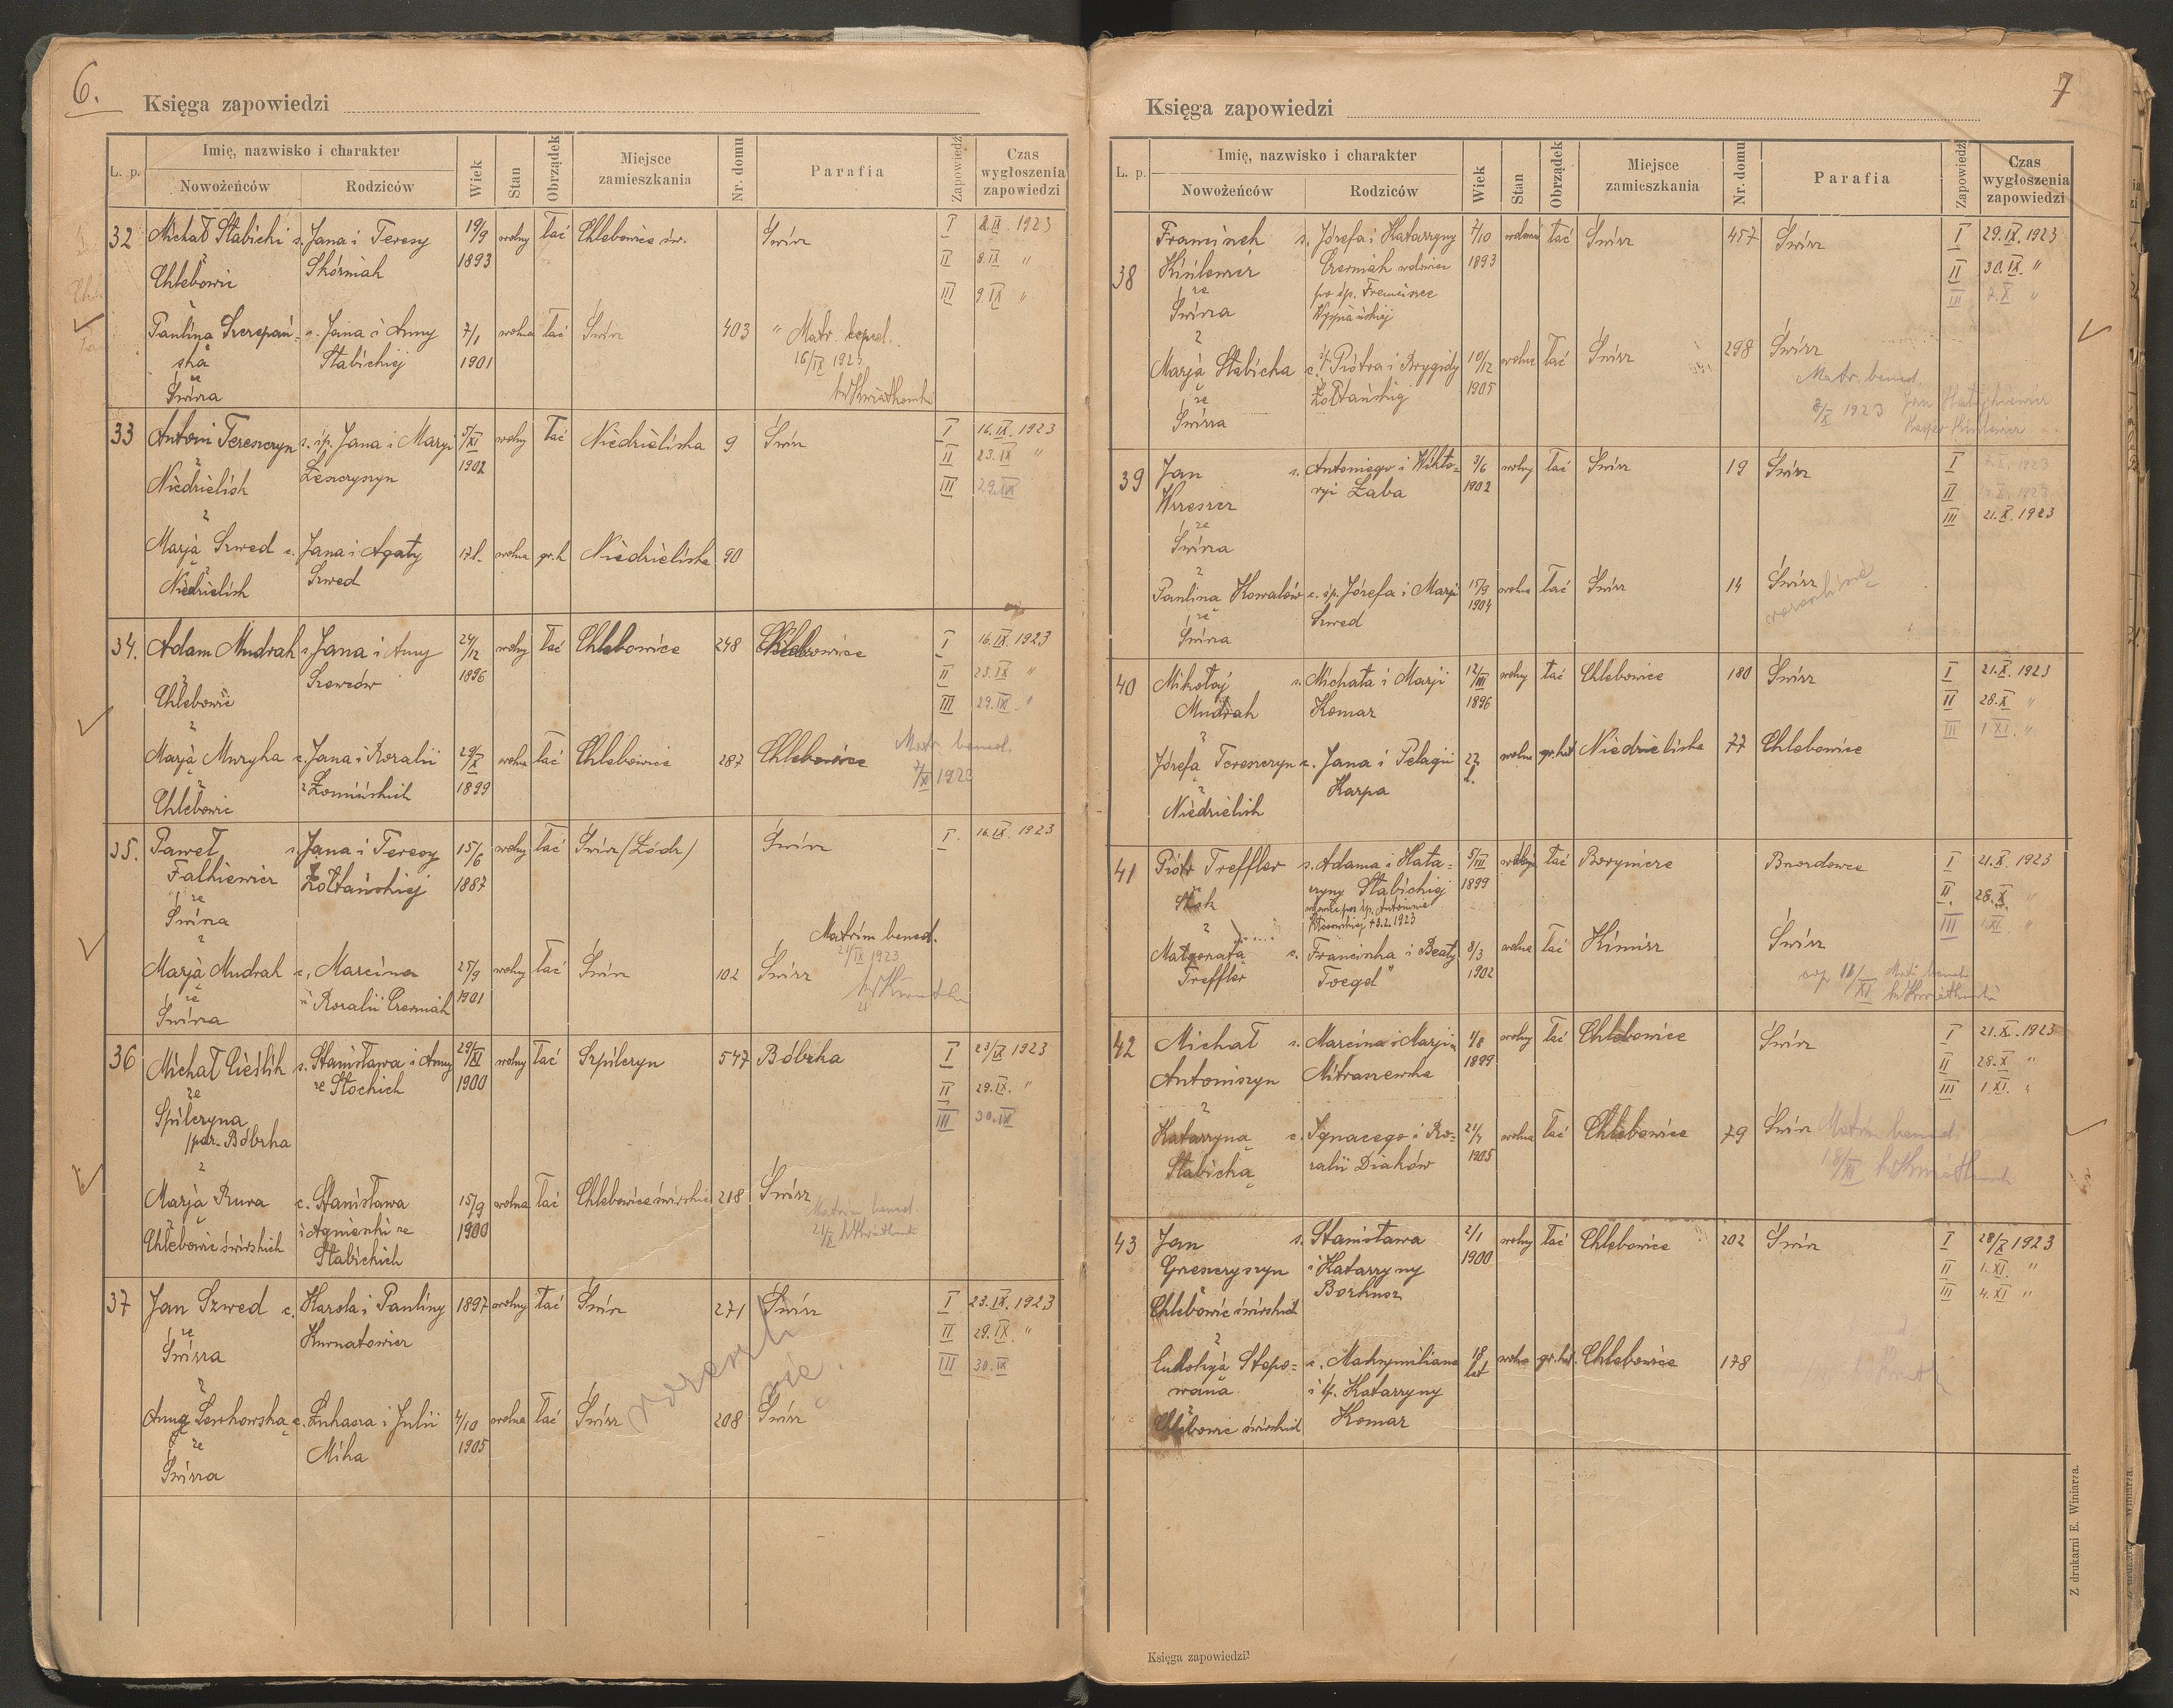 6.
Księga zapowiedzi
L. p.
Imię, nazwisko i charakter
Nowożeńców
Rodziców
Wiek
Stan
Obrządek
Miejsce
zamieszkania
Nr. domu
Parafia
Zapowiedź
Czas
wygłoszenia
zapowiedzi
32 Michał Słabicki s. Jana i Teresy 19/9 wolny łać Chlebowice św. Świrz I 2.IX. 1923
z Chlebowic Skórniak 1893 II 8.IX "
III 9.IX "
Paulina Szczepań- c. Jana i Anny 7/1 wolna łać Świrz 403 " Matr. copul.
ska Słabickiej 1901 16/IX 1923
ze
Świrza
33 Antoni Tereszczyn s. śp. Jana i Maryi 5/XI wolny łać Niedzieliska 9 Świrz I 16.IX. 1923
z 1902 II 23.IX "
Niedzielisk III 29.IX
z
Marja Szwed c. Jana i Agaty 17 l. wolna gr.k Niedzieliska 90
z Niedzielisk Szwed
34. Adam Mudrak s. Jana i Anny 24/12 wolny łać Chlebowice 248 Chlebowice I 16.IX. 1923
z Szewców 1896 II 23.IX "
Chlebowic III 29.IX. "
z
Marja Muryha c. Jana i Rozalii 29/X wolna łać Chlebowice 287 Chlebowice Matr. bened.
z z Łomińskich 1899 1923
Chlebowic
35. Paweł s. Jana i Teresy 15/6 wolny łać Świrz (Łódź) Świrz I. 16.IX. 1923
Falkiewicz Żółtańskiej 1887
ze
Świrza
z Matrim bened.
Marja Mudrak c. Marcina 25/9 wolny łać Świrz 102 Świrz IX 1923
ze i Rozalii Czerniak 1901
Świrza
36 Michał Cieślik s. Stanisława i Anny 29/XI wolny łać Szpilczyn 547 Bóbrka I 23/IX 1923
ze ze Słockich 1900 II 29.IX. "
Spilczyna III 30.IX
/par. Bóbrka
z
Marja Ruwa c. Stanisława 15/9 wolna łać Chlebowice świrskie 218 Świrz
z i Agnieszki ze 1900 Matrim bened.
Chlebowic świrskich Słabickich
37 Jan Szwed c. Karola i Pauliny 1897 wolny łać Świrz 271 Świrz I 23.IX. 1923
ze Kurnatowicz II 29.IX. "
Świrza III 30.IX
z rozeszli się.
Anna c. Łukasza i Julii 4/10 wolna łać Świrz 208 Świrz
ze Miha 1905
Świrza
7
Księga zapowiedzi
L. p.
Imię, nazwisko i charakter
Nowożeńców
Rodziców
Wiek
Stan
Obrządek
Miejsce
zamieszkania
Nr. domu
Parafia
Zapowiedź
Czas
wygłoszenia
zapowiedzi
38 Franciszek s. Józefa i Katarzyny 2/10 łać Świrz 457 Świrz I 29.IX. 1923
Czerniak wdowiec 1893 II 30.IX. "
ze po śp. Franciszce III 7.X "
Świrza
z
Marja Słabicka c. śp. Piotra i Brygidy 10/12 wolna łać Świrz 298 Świrz
ze Żółtańskiej 1905 Matr. bened.
Świrza 8/X 1923
39 Jan s. Antoniego i Wikto- 3/6 wolny łać Świrz 19 Świrz I 7.X. 1923
Wreszcz ryi Żaba 1902 II 14.X. 1923
ze III 21.X. 1923
Świrza
z
Paulina Kowalów c. śp. Józefa i Marji 15/9 wolna łać Świrz 14 Świrz
ze Szwed 1904 rozeszli się
Świrza
40 Mikołaj s. Michała i Marji 12/III wolny łać Chlebowice 180 Świrz I 21.X. 1923
Mudrak Komar 1896 II 28.X "
z III 1.XI. "
Józefa Tereszczyn c. Jana i Pelagii 22 l. wolna gr.kat Niedzieliska 77 Chlebowice
z Karpa
Niedzielisk
41 Piotr Treffler s. Adama i Kata- 5/III łać Borynicze Brzozdowce I 21.X. 1923
ze rzyny Słabickiej 1899 II. 28.X. "
Stok śp. Antoninie III 1.XI. "
z +3.2.1923
Małgorzata c. Franciszka i Beaty 8/3 wolna łać Kimirz Świrz
Treffler Toegel" 1902 Matr. bened.
42 Michał s. Marcina i Marji 1/8 wolny łać Chlebowice Świrz I 21.X. 1923
Antoniszyn Mitraszewska 1899 II 28.X "
z III 1.XI. "
Katarzyna c. Ignacego i Ro- 24/7 wolna łać Chlebowice 79 Świrz Matrim bened.
Słabicka zalii Diaków 1905
43 Jan s. Stanisława 2/1 wolny łać Chlebowice 202 Świrz I 28/X 1923
Grzeszczyszyn i Katarzyny 1900 II 1.XI. "
z Borkusz III 4.XI "
Chlebowic świrskich
z
Eudokja Stepo- c. Maksymiliana 18 lat wolna gr.kat. Chlebowice 178
wana i śp. Katarzyny
z Chlebowic świrskich Komar
Z drukarni E. Winiarza.
Księga zapowiedzi